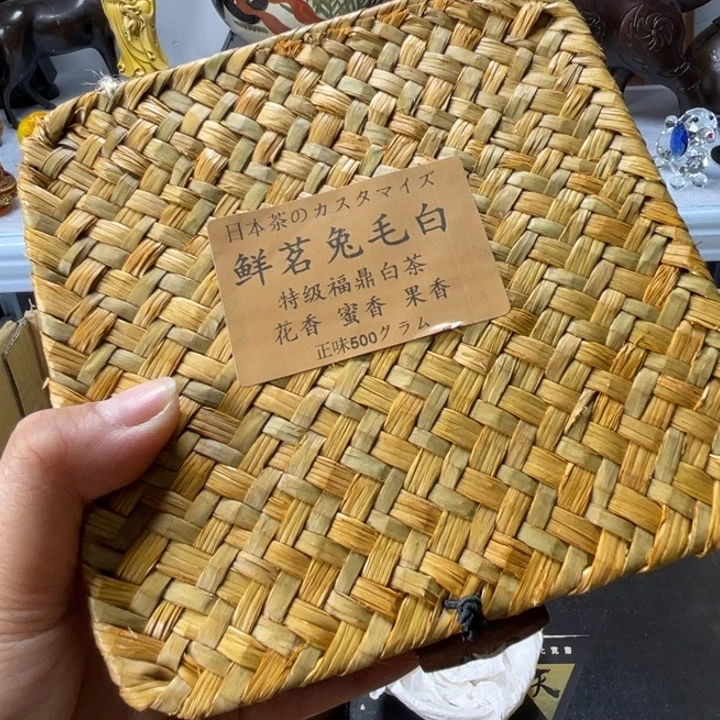 日本茶のカスタマイズ
鲜茗兔毛白
特级福鼎白茶
花香 蜜香 果香
正味500グラム
天